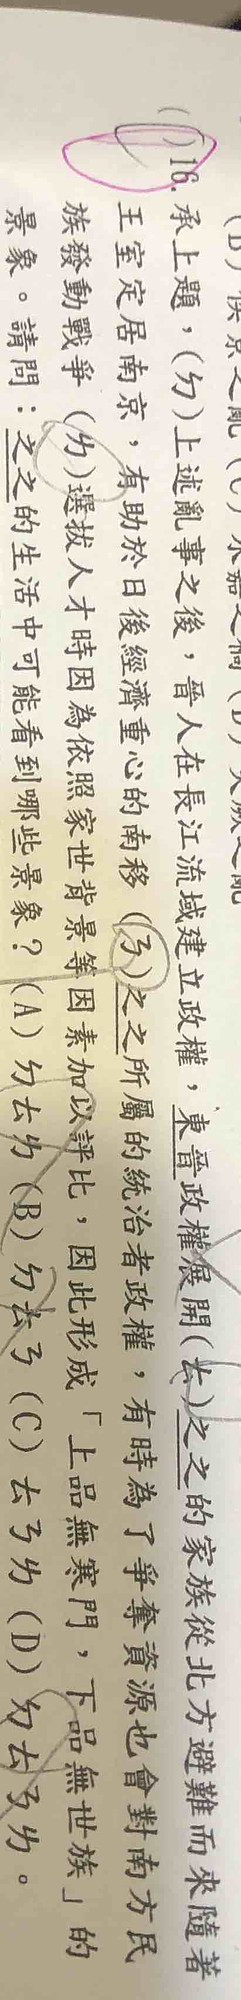 (D)
( )16.承上題，(ㄉ)上述亂事之後，晉人在長江流域建立政權，東晉政權展開(ㄊ)之之的家族從北方避難而來隨著
王室定居南京，有助於日後經濟重心的南移 (ㄋ)之之所屬的統治者政權，有時為了爭奪資源也會對南方民
族發動戰爭 (ㄌ)選拔人才時因為依照家世背景等因素加以評比，因此形成「上品無寒門，下品無世族」的
景象。請問：之之的生活中可能看到哪些景象？(A)ㄉㄊㄌ(B)ㄉㄊㄋ(C)ㄊㄋㄌ(D)ㄉㄊㄋㄌ。